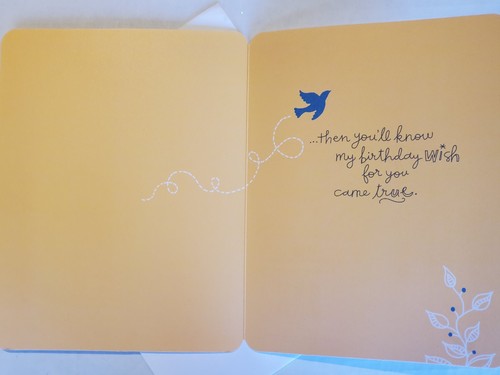 ...then you'll know
my birthday wish
for you
came true.